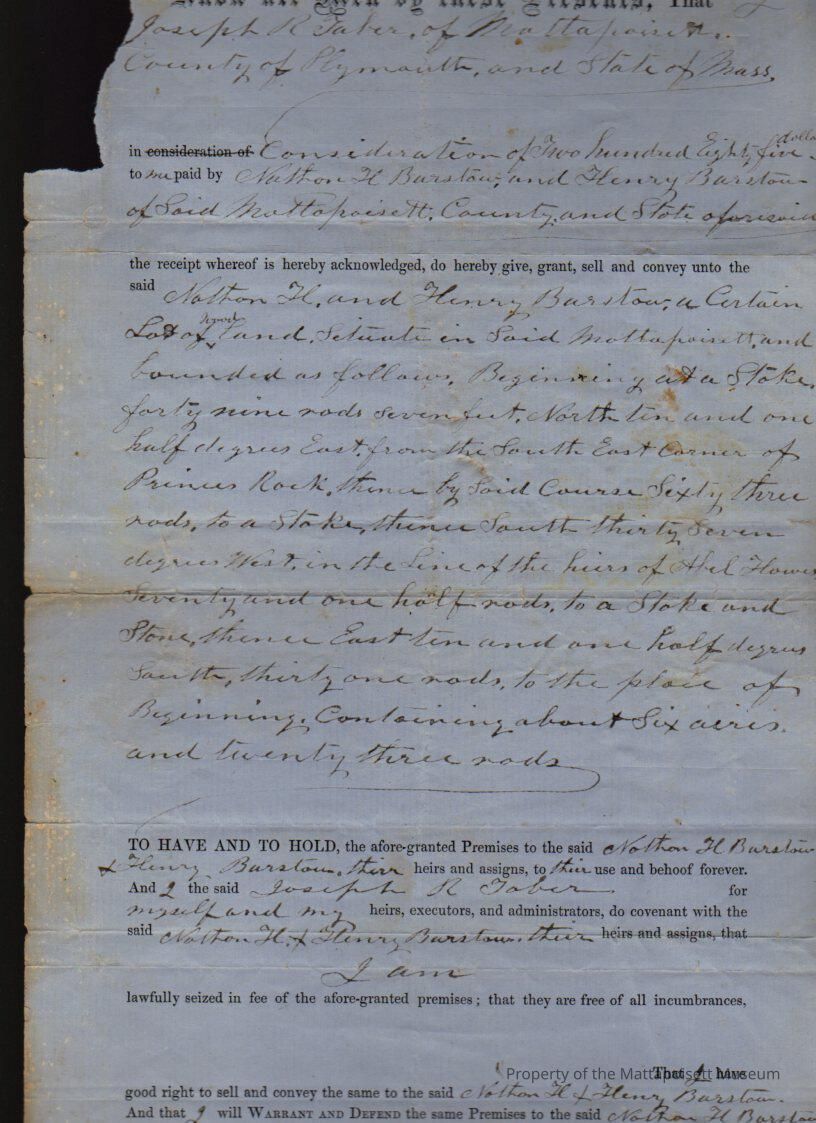 Know all Men by these Presents, That I
Joseph R Taber, of Mattapoisett,
County of Plymouth, and State of Mass,
in consideration of Consideration of Two hundred Eighty five dolla
to me paid by Nathan H Barstow, and Henry Barstow
of Said Mattapoisett, County, and State aforesaid
the receipt whereof is hereby acknowledged, do hereby give, grant, sell and convey unto the
said Nathan H. and Henry Barstow, a Certain
Lot of wood Land, Situate in Said Mattapoisett, and
bounded as follows, Beginning at a Stake,
forty nine rods seven feet, North ten and one
half degrees East, from the South East Corner of
Princes Rock, thence by Said Course Sixty three
rods, to a Stake, thence South thirty Seven
degrees West, in the Line of the heirs of Abel
Seventy and one half rods, to a Stake and
Stone, thence East ten and one half degrees
South, thirty one rods, to the place of
Beginning. Containing about Six acres
and twenty three rods
TO HAVE AND TO HOLD, the afore-granted Premises to the said Nathan H Barstow
& Henry Barstow, their heirs and assigns, to their use and behoof forever.
And I the said Joseph R Taber for
myself and my heirs, executors, and administrators, do covenant with the
said Nathan H. & Henry Barstow, their heirs and assigns, that
I am
lawfully seized in fee of the afore-granted premises; that they are free of all incumbrances,
That I have
Property of the Mattapoisett Museum
good right to sell and convey the same to the said Nathan H & Henry Barstow.
And that I will WARRANT AND DEFEND the same Premises to the said Nathan H Barstow